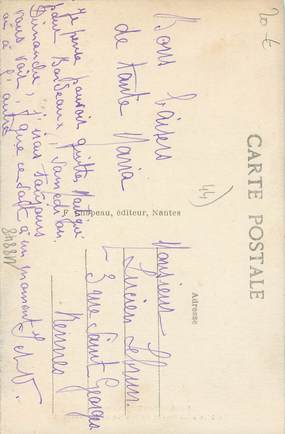 CARTE POSTALE
Bons baisers
de tante Maria
Je pense pouvoir quitter
pour Bordeaux, samedi ou
Dimanche, j'irais toujours
vous voir, que ce soit à un moment
ou à l'autre
F. Chapeau, éditeur, Nantes
Adresse
Monsieur
Lucien
3 rue Saint Georges
Rennes
20 €
44)